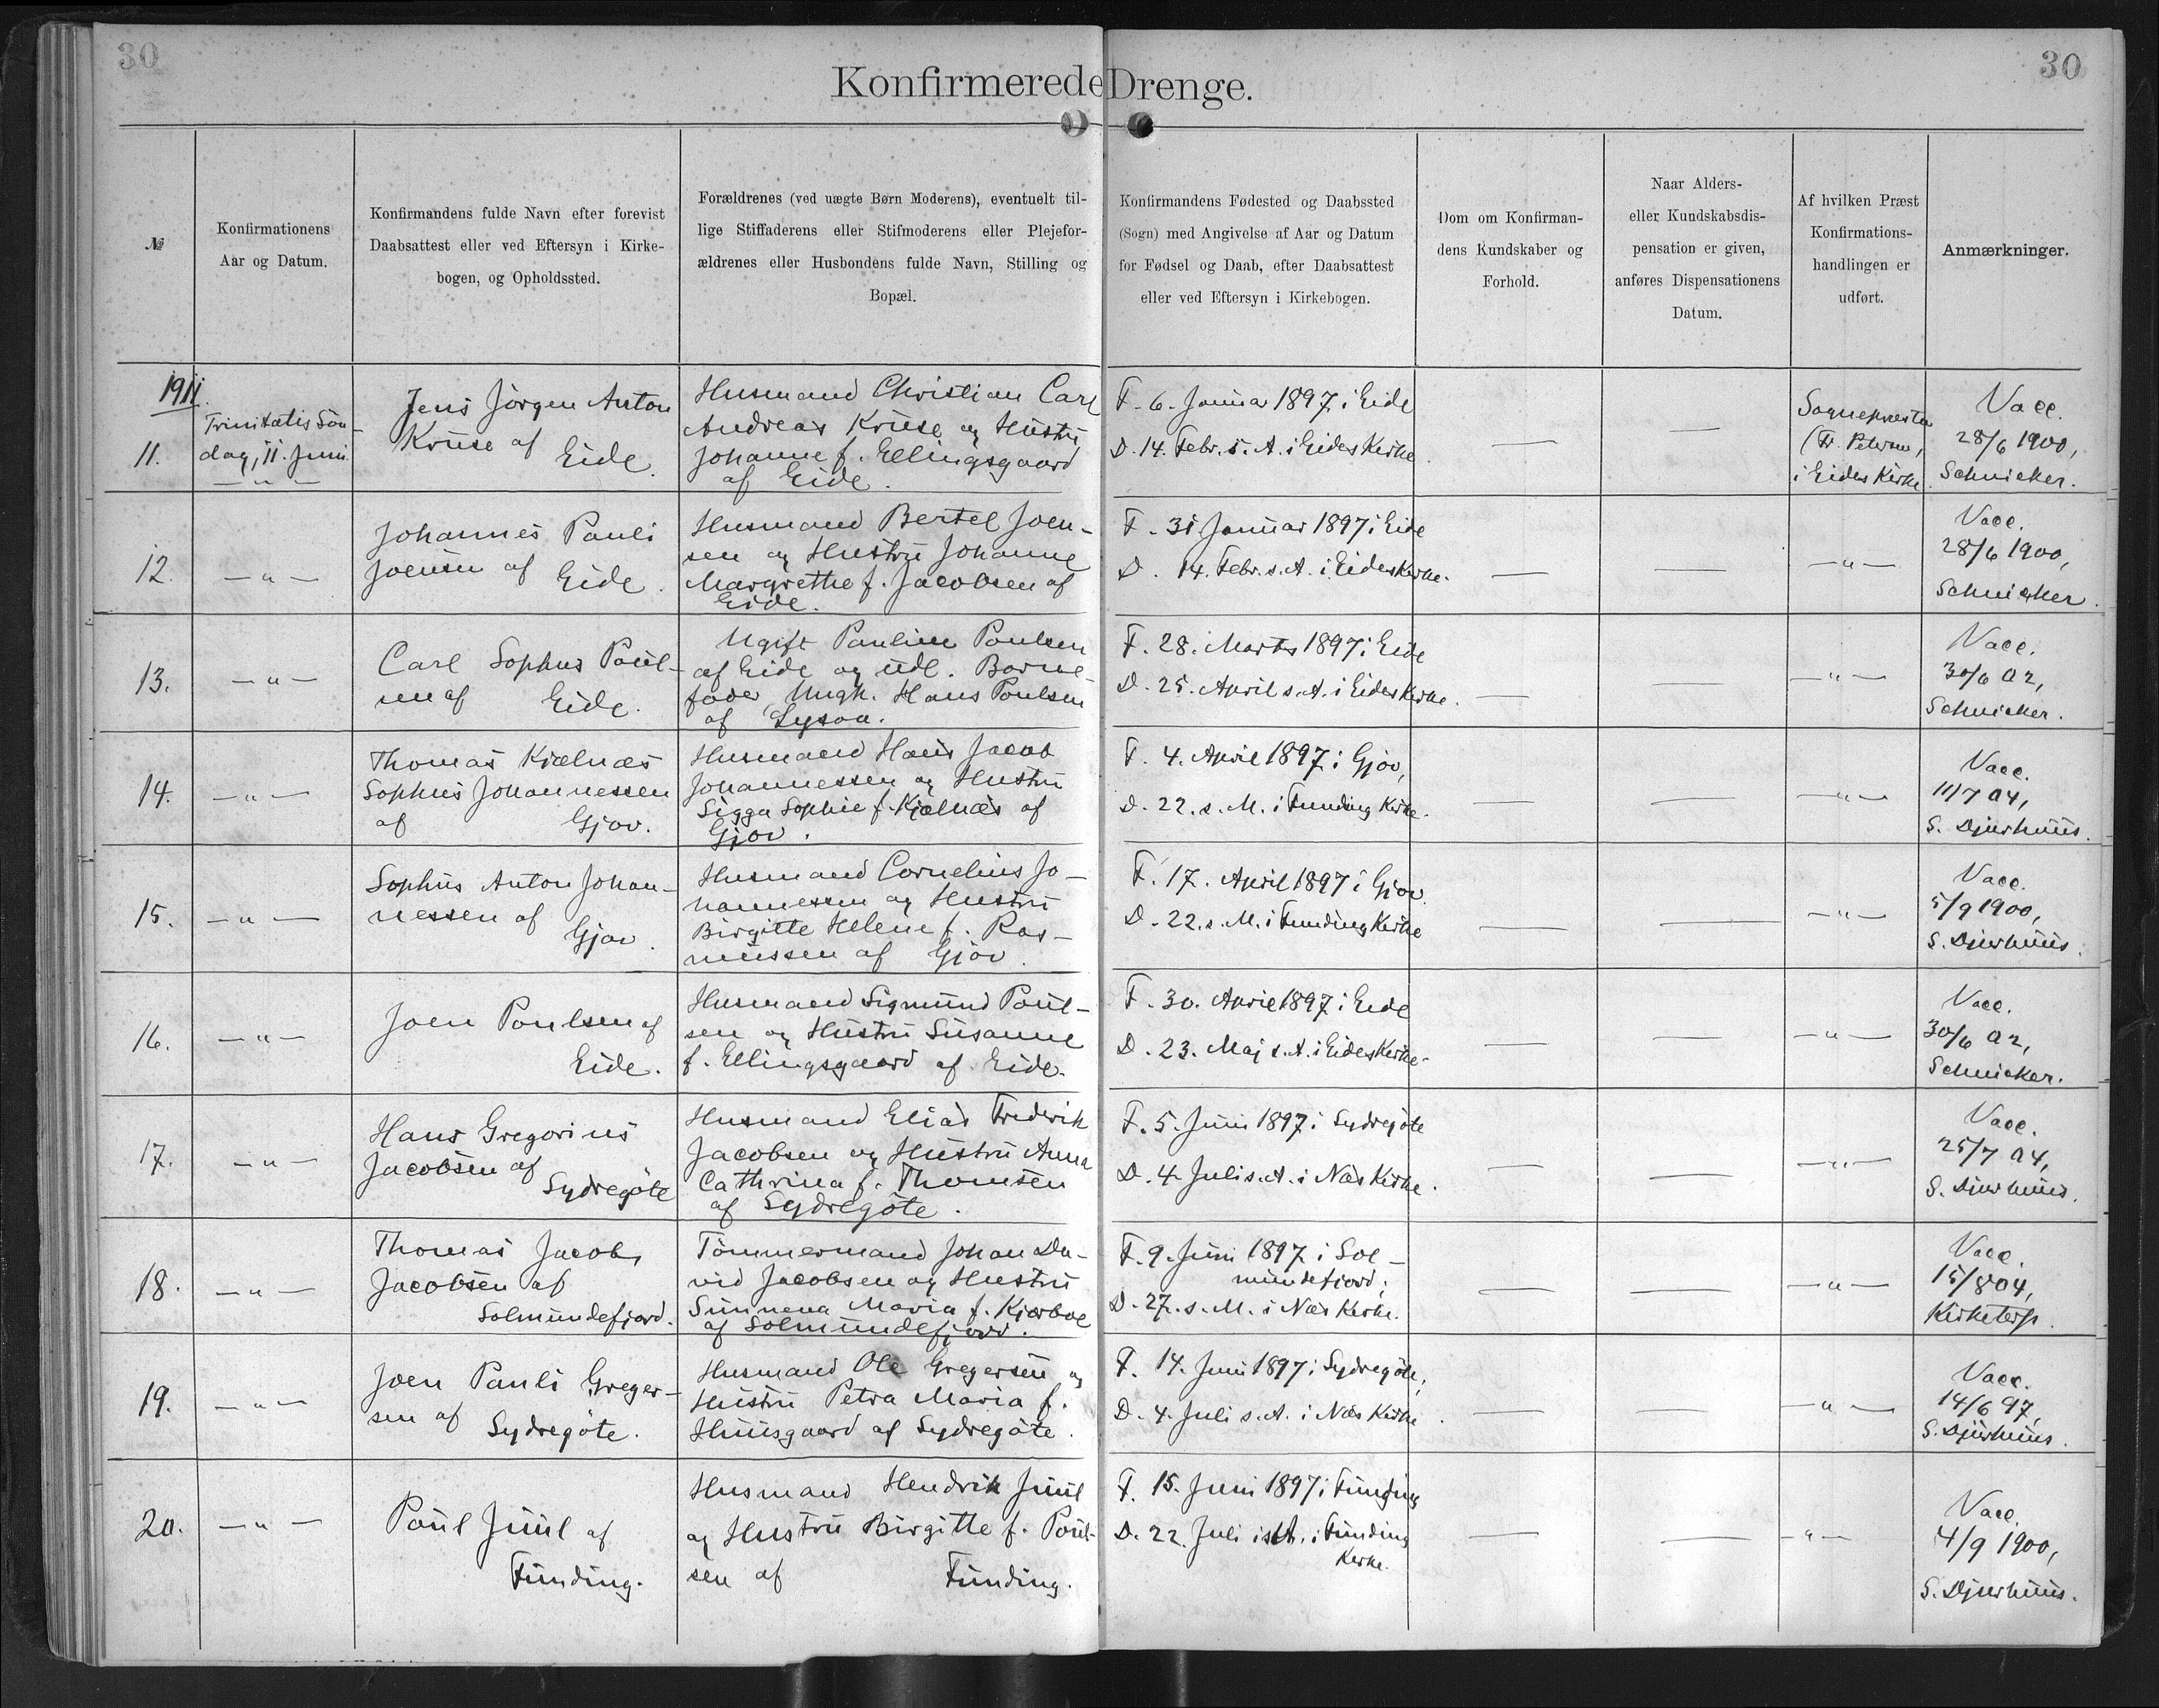 30
30
Konfirmerede Drenge.
№
Konfirmationens
Aar og Datum.
Konfirmandens fulde Navn efter forevist
Daabsattest eller ved Eftersyn i Kirke-
bogen, og Opholdssted.
Forældrenes (ved uægte Børn Moderens), eventuelt til-
lige Stiffaderens eller Stifmoderens eller Plejefor-
ældrenes eller Husbondens fulde Navn, Stilling og
Bopæl.
Konfirmandens Fødested og Daabssted
(Sogn) med Angivelse af Aar og Datum
for Fødsel og Daab, efter Daabsattest
eller ved Eftersyn i Kirkebogen.
Dom om Konfirman-
dens Kundskaber og
Forhold.
Naar Alders-
eller Kundskabsdis-
pensation er given,
anføres Dispensationens
Datum.
Af hvilken Præst
Konfirmations-
handlingen er
udført.
Anmærkninger.
1911.
11.
Trinitatis Søn-
dag, 11. Juni
— " —
Jens Jörgen Anton
Kruse af
Eide.
Husmand Christian Carl
Andreas Kruse og Hustru
Johanne f. Ellingsgaard
af Eide.
F. 6. Januar 1897 i Eide
D. 14. Febr. s. A. i Eides Kirke.
—
—
Sognepresten
Fr. Petersen,
i Eides Kirke.
Vacc.
28/6 1900,
Schnicker.
12.
— " —
Johannes Pauli
Joensen af
Eide.
Husmand Bertel Joen-
sen og Hustru Johanne
Margrethe f. Jacobsen af
Eide.
F. 31 Januar 1897 i Eide
D. 14. Febr. s. A. i Eides Kirke.
—
—
— " —
Vacc.
28/6 1900,
Schnicker.
13.
— " —
Carl Sophus Poul-
sen af
Eide.
Ugift Pauline Poulsen
af Eide og udl. Barne-
fader, Ungk. Hans Poulsen
af
F. 28. Marts 1897 i Eide
D. 25. April s. A. i Eides Kirke.
—
—
— " —
Vacc.
30/6 02,
Schnicker.
14.
— " —
Thomas Kjælnæs
Sophus Johannessen
af Gjov.
Husmand Hans Jacob
Johannessen og Hustru
Sigga Sophie f. Kjælnæs af
Gjov.
F. 4. April 1897 i Gjov,
D. 22. s. M. i Funding Kirke.
—
—
— " —
Vacc.
11/7 04,
S. Djurhuus.
15.
— " —
Sophus Anton Johan-
nessen af
Gjov.
Husmand Cornelius Jo-
hannessen og Hustru
Birgitte Helene f. Ras-
mussen af Gjov.
F. 17. April 1897 i Gjov
D. 22. s. M. i Funding Kirke
—
—
— " —
Vacc.
5/9 1900,
S. Djurhuus.
16.
— " —
Joen Poulsen af
Eide.
Husmand Sigmund Poul-
sen og Hustru Susanne
f. Ellingsgaard af Eide.
F. 30. April 1897 i Eide
D. 23. Maj s. A. i Eides Kirke.
—
—
— " —
Vacc.
30/6 02,
Schnicker.
17.
— " —
Hans Gregorius
Jacobsen af
Sydregöte
Husmand Elias Frederik
Jacobsen og Hustru Anna
Cathrina f. Thomsen
af Sydregöte.
F. 5. Juni 1897 i Sydregöte
D. 4. Juli s. A. i Næs Kirke.
—
—
— " —
Vacc.
25/7 04,
S. Djurhuus.
18.
— " —
Thomas Jacob,
Jacobsen af
Solmundefjord.
Tömmermand Johan Da-
vid Jacobsen og Hustru
Sunneva Maria f. Kjærboe
af Solmundefjord.
F. 9. Juni 1897 i Sol-
mundefjord;
D. 27. s. M. i Næs Kirke.
—
—
— " —
Vacc.
15/8 04,
Kirketerp.
19.
— " —
Joen Pauli Greger-
sen af Sydregöte.
Husmand Ole Gregersen og
Hustru Petra Maria f.
Huusgaard af Sydregöte.
F. 14. Juni 1897 i Sydregöte,
D. 4. Juli s. A. i Næs Kirke.
—
—
— " —
Vacc.
14/6 97,
S. Djurhuus.
20.
— " —
Poul Juul af
Funding.
Husmand Hendrik Juul
og Hustru Birgitte f. Poul-
sen af Funding.
F. 15. Juni 1897 i Funding
D. 22. Juli i s. A. i Funding
Kirke.
—
—
— " —
Vacc.
4/9 1900,
S. Djurhuus.